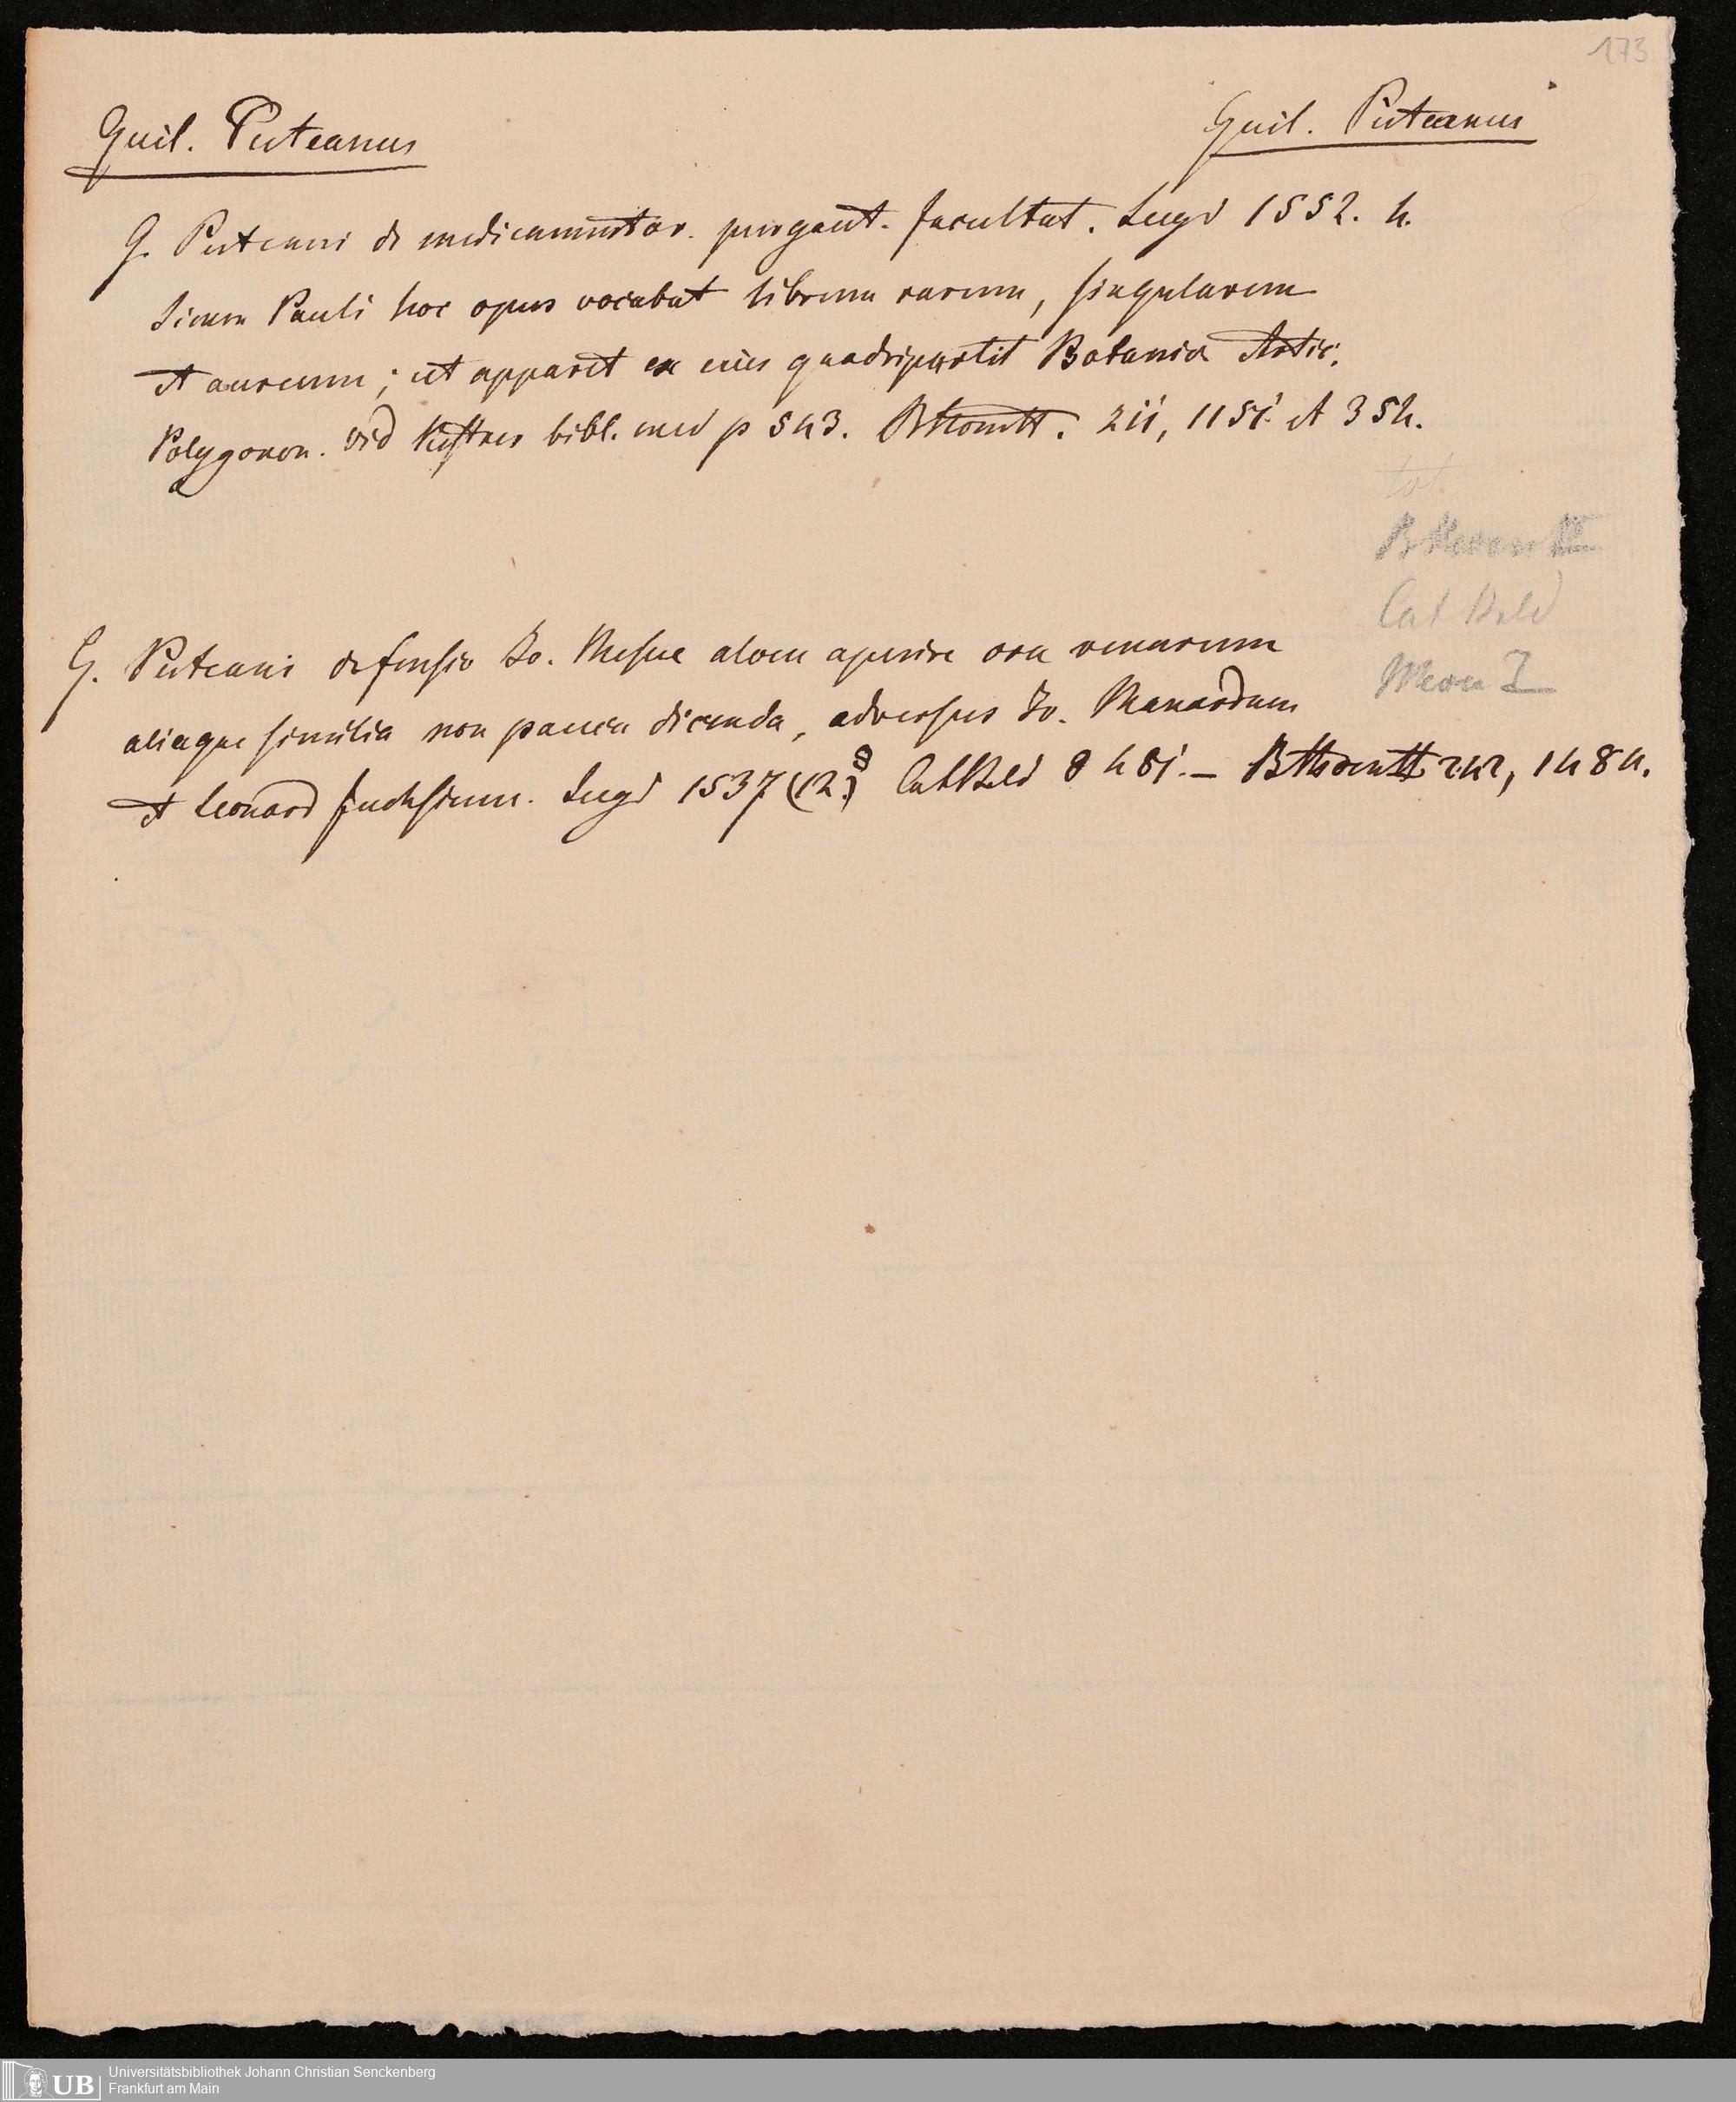 173
Guil. Puteanus
Guil. Puteanus
G. Puteani de medicamentor. purgant. facultat. Lugd 1552. 4.
Simon Pauli hoc opus vocabat librum rarum, singularem
et aureum; ut apparet ex eius quadripartit Botanid Artic.
Polygonon. vid Kestner bibl. med p 543. 211, 1151. et 354.
tot.
Cat Bald
G. Puteani defensio Jo. Mesue aloen aperire ora venarum
aliaque similia non pauca dicenda, adversus Jo. Manardum
et Leonard Fuchsium. Lugd 1537 (12.) 8 CatBald 8 481. – 1484.
Universitätsbibliothek Johann Christian Senckenberg
UB
Frankfurt am Main